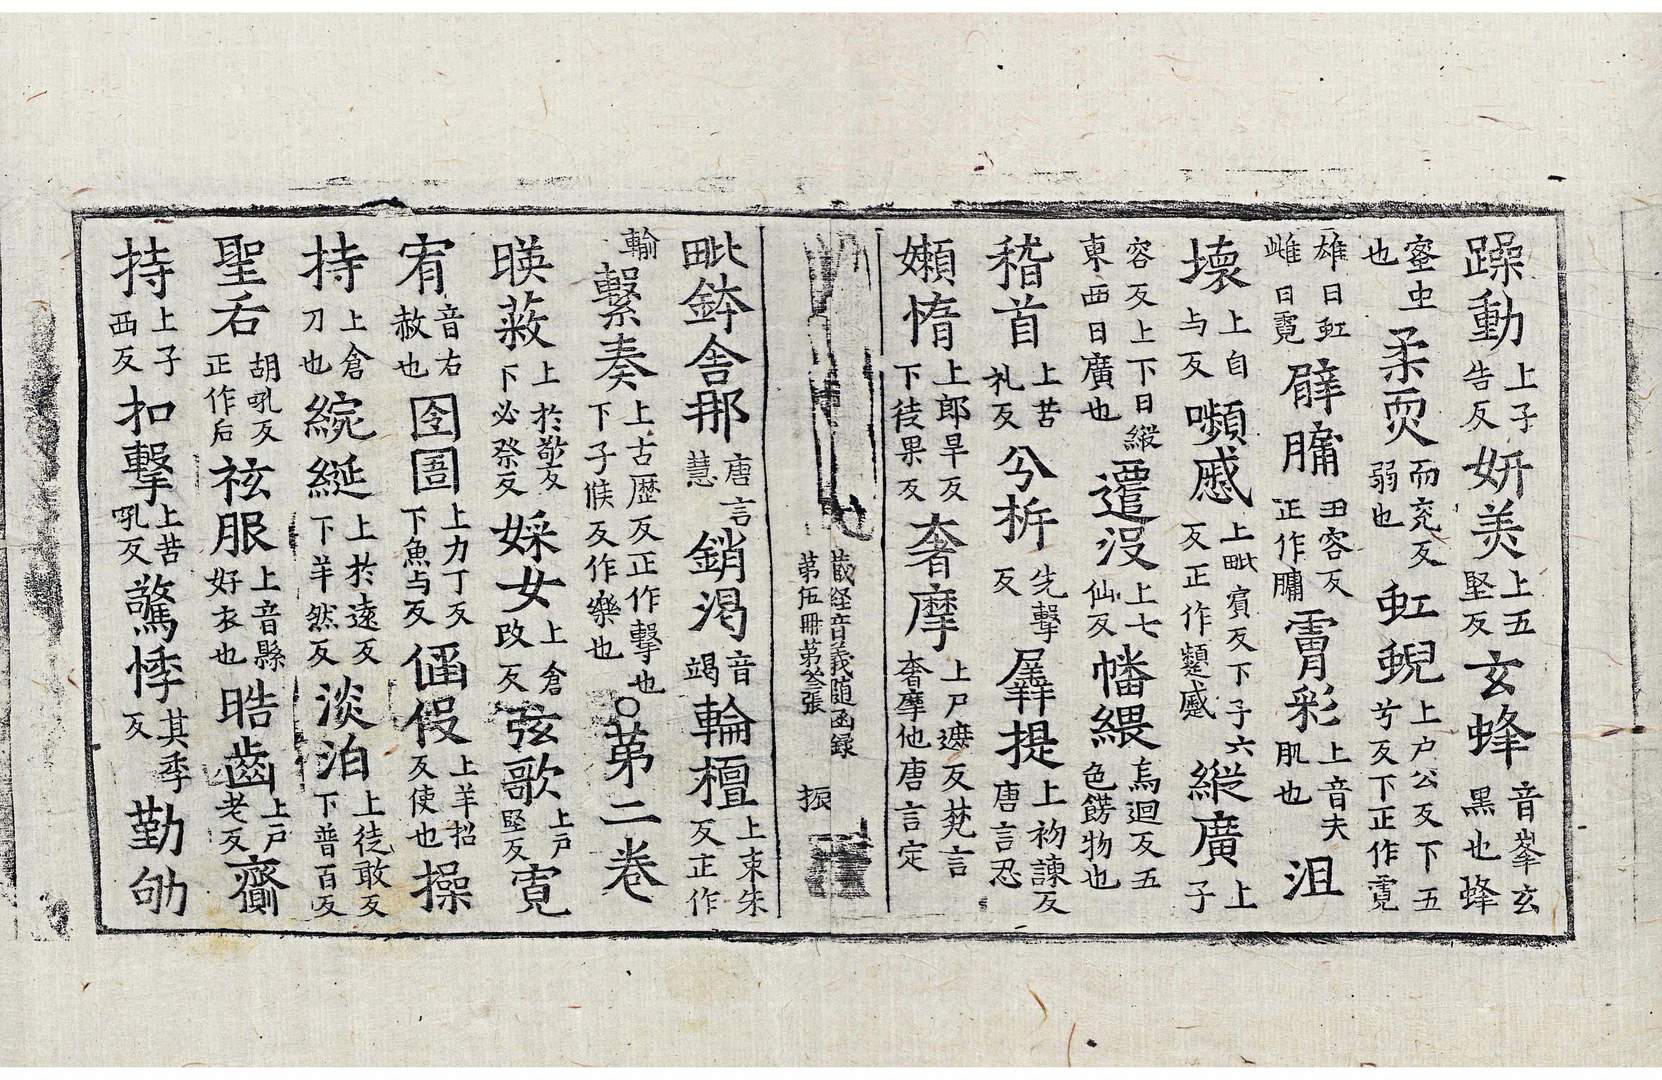 躁動上子告反妍美上五堅反玄蜂音峯玄黒也蜂
蜜虫也柔耎而兖反弱也虹蜺上户公反下五兮反下正作霓
雄日虹雌日霓臂膞𤰞容反正作膞霄彩上音夫肌也沮
壞上自与反嚬慼上毗賓反下子六反正作顰慼縱廣上子
容反上下曰縱東西曰廣也遷没上七仙反幡緩烏迴反五色髣物也
稽首上苦礼反兮析先擊反羼提上初諫反唐言忍
嬾惰上郎旱反下徒果反奢摩上尸遮反梵言奢摩他唐言定
藏經音義随函録
第伍冊第叁張
振
毗鉢舎那唐言慧銷渇音竭輪檀上束朱反正作
輸繫奏上古歴反正作擊也下子候反作樂也○第二卷
暎蔽上於敬反下必祭反婇女上倉改反弦歌上户堅反寛
宥音右赦也囹圄上力丁反下魚与反傜役上羊招反使也操
持上倉刀也綩綖上於逺反下羊然反淡泊上徒敢反下普百反
聖后胡吼反正作后袨服上音縣好衣也晧齒上户老反齎
持上子西反扣擊上苦吼反驚悸其季反勤劬